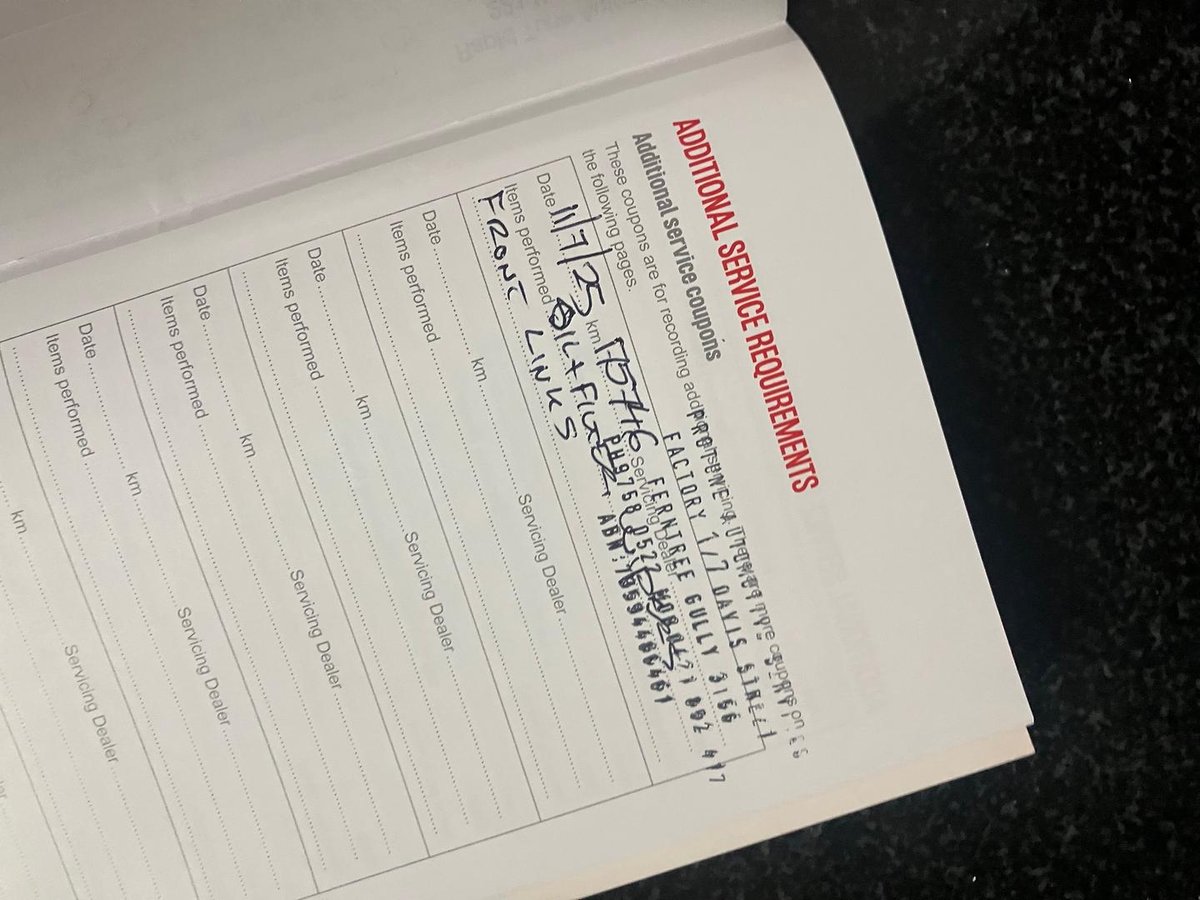 ADDITIONAL SERVICE REQUIREMENTS
Additional service coupons
These coupons are for recording additional servicing. more coupons on
the following pages.
PROTUNE
FACTORY 1/7 DAVIS STREET
FERNTREE GULLY 3156
PH 9758 0522
ABN:
Date 11/7/25 km Servicing Dealer
Items performed OIL + FILTER
FRONT LINKS
Date km Servicing Dealer
Items performed
Date km Servicing Dealer
Items performed
Date km Servicing Dealer
Items performed
Date km Servicing Dealer
Items performed
km